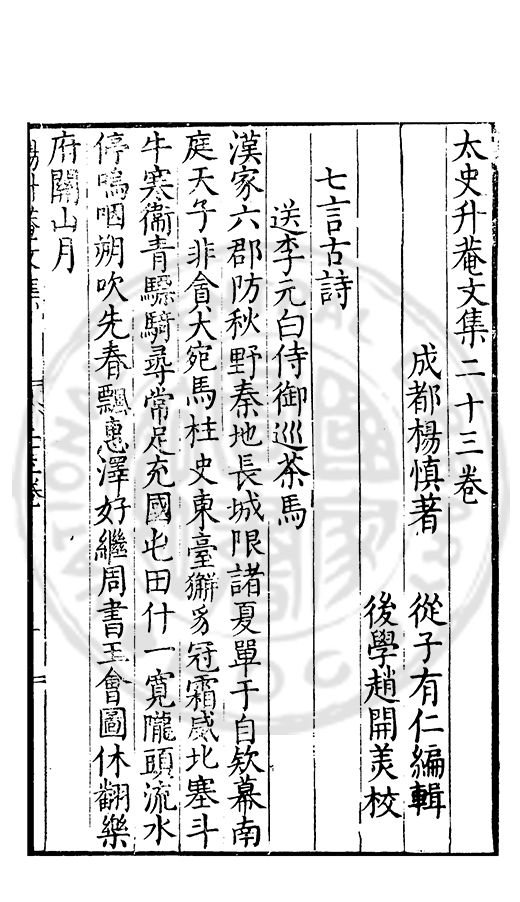 太史升菴文集二十三卷
成都楊慎著　從子有仁編輯
後學趙開美校
七言古詩
送李元白侍御巡茶馬
漢家六郡防秋野秦地長城限諸夏單于自欵幕南
庭天子非貪大宛馬柱史東臺獬豸冠霜威北塞斗
牛寒衞青驃騎尋常足充國屯田什一寬隴頭流水
停嗚咽朔吹先春飄惠澤好繼周書王會圖休翻樂
府關山月